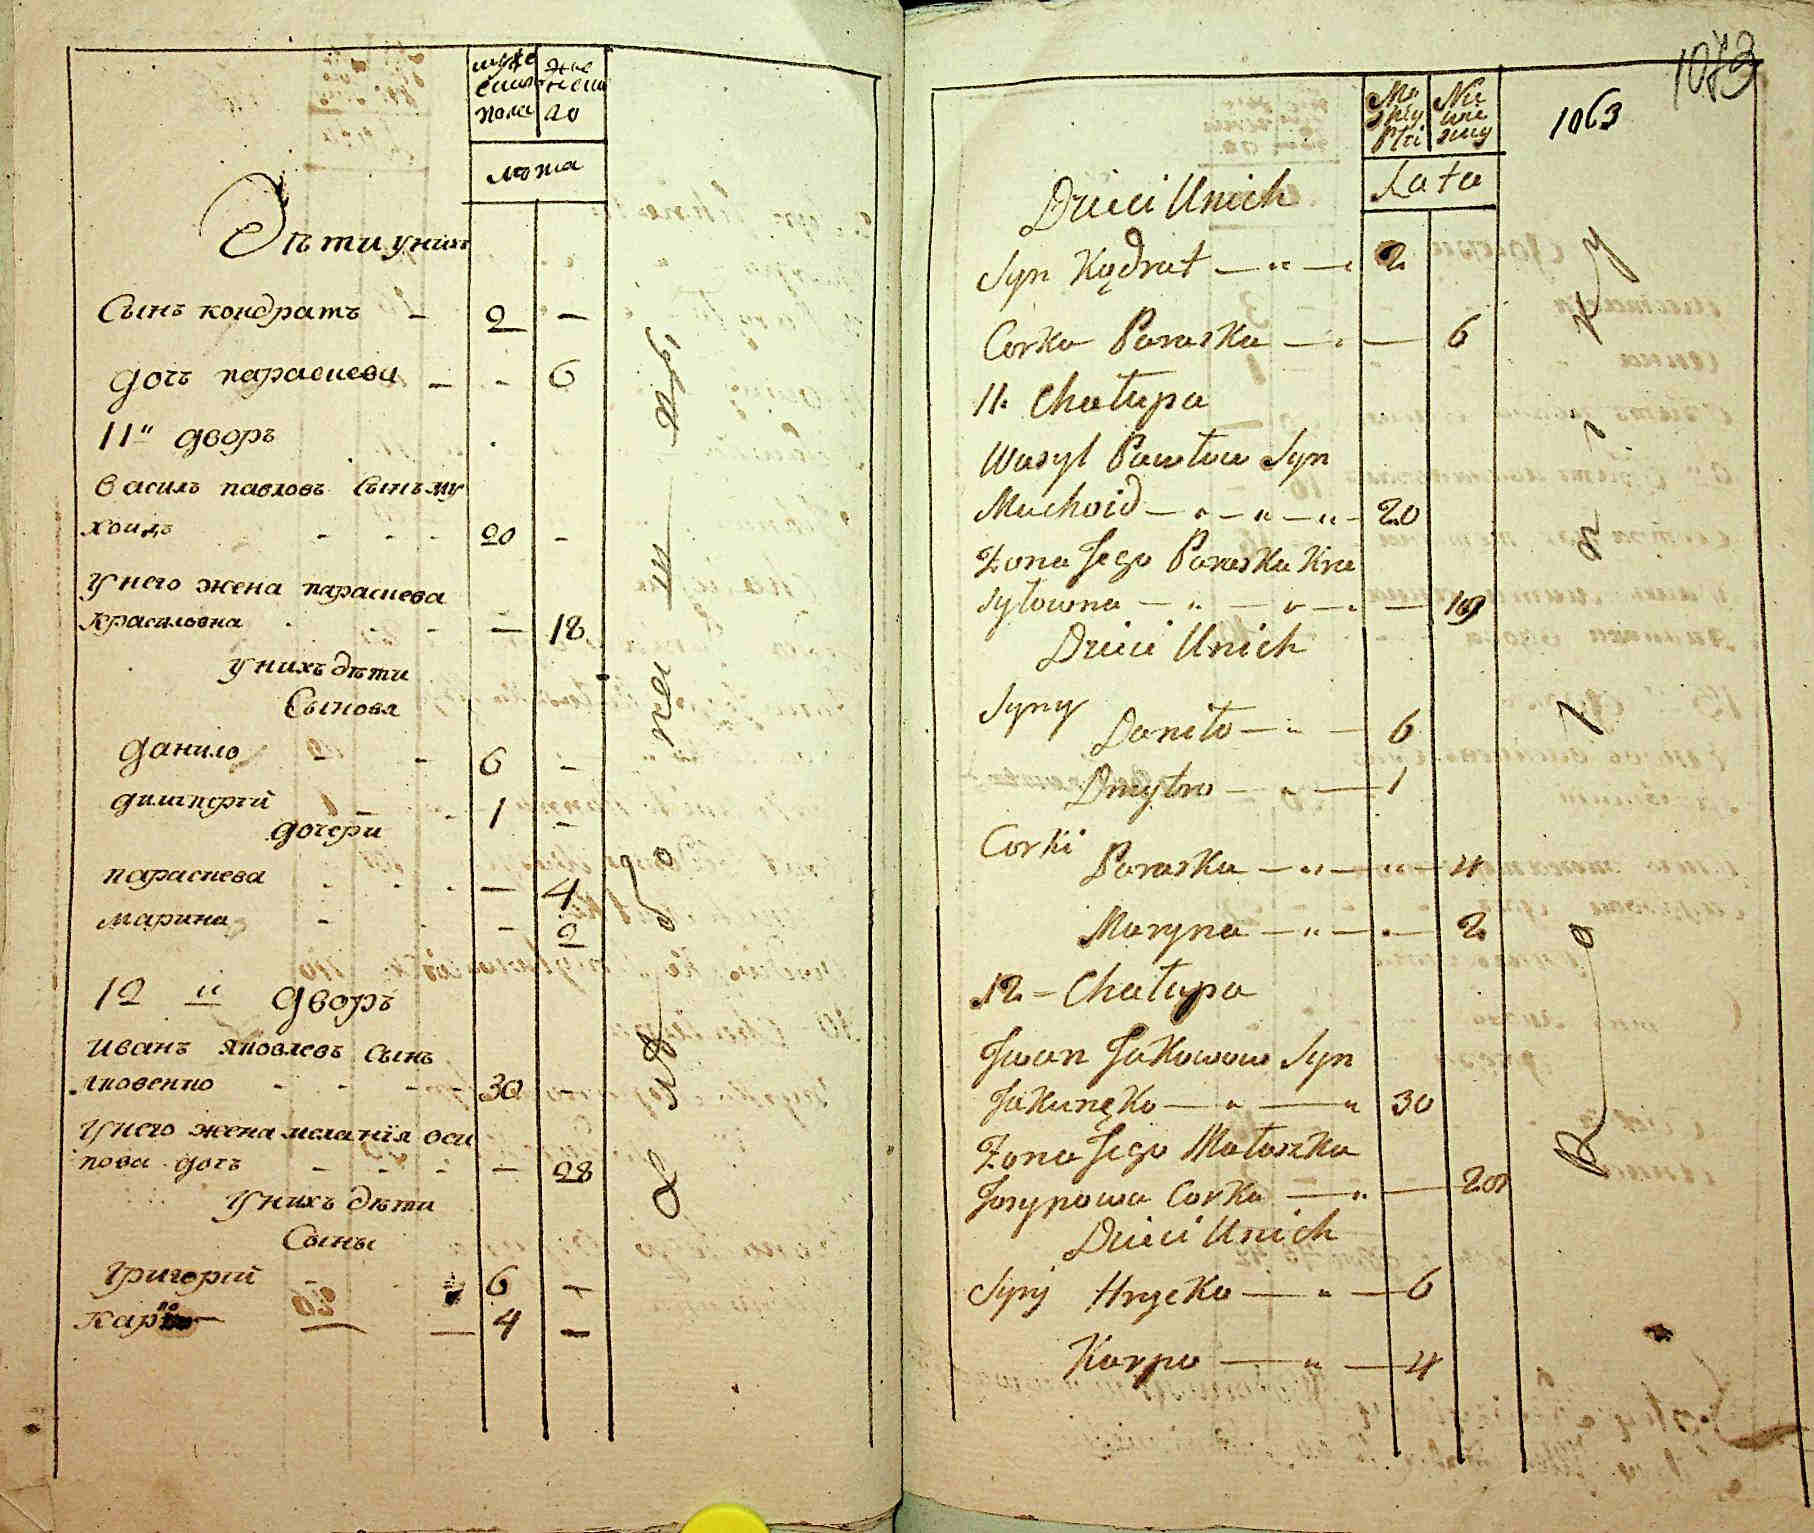 муже
ска
пола
жен
ска
го
лѣта
Дѣти у нихъ
Сынъ кондратъ – 2 –
дочь парасцева – - 6
11й дворъ
василь павловъ сынъ му
хоидъ - - - 20 -
у него жена парасцева
красиловна - - – 18
у нихъ дѣти
Сыновя
данило - 6 –
димитрій - 1 –
дочери
парасцева - - - – 4
марина - - - 2
12й дворъ
иванъ яковлевъ сынъ
яковенко - - - - 30 –
у него жена меланія оси
пова дочь - - - – 28
у нихъ дѣти
Сыны
григорій - 6 –
карпо – 4 –
1073
1063
Lata
Dzieci Unich
Syn Kądrat — „ — 2
Corka Paraska — „ — 6
11. Chałupa
Wasyl Pawłow Syn
Muchoid — „ — „ — „ - 20
Zona Jego Paraska Kra
syłowna — „ — „ — „ — 18
Dzieci Unich
Syny
Daniło — „ — 6
Dmytro — „ — 1
Corki
Paraska — „ — „ — 4
Maryna — „ — „ — 2
12 – Chałupa
Jwan Jakowow Syn
Jakunęko — „ — „ 30
Zona Jego Małaszka
Josypowa Corka — „ — 28
Dzieci Unich
Syny Hryćko — „ — 6
Karpo — „ — 4